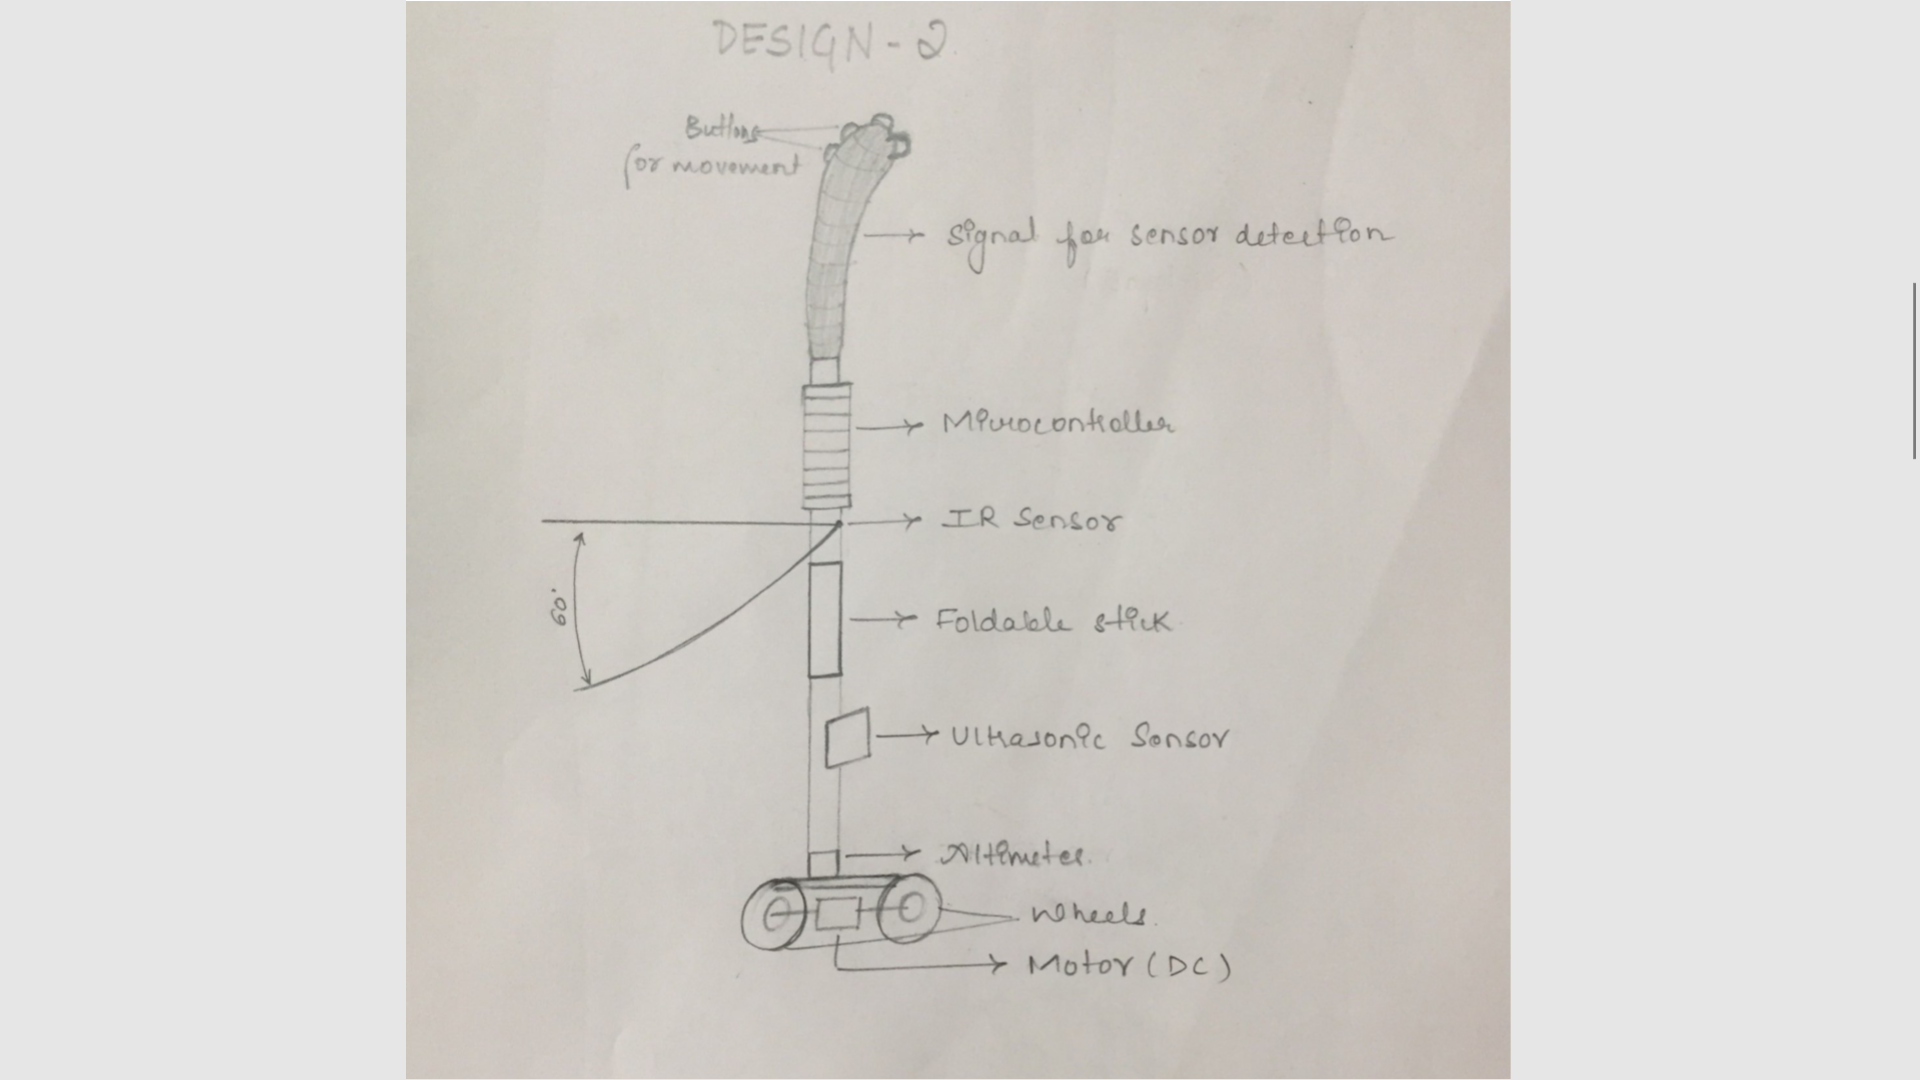 DESIGN - 2
Buttons
for movement
Signal for sensor detection
Microcontroller
IR Sensor
60°
Foldable stick
Ultrasonic Sensor
Altimeter.
Wheels.
Motor (DC)